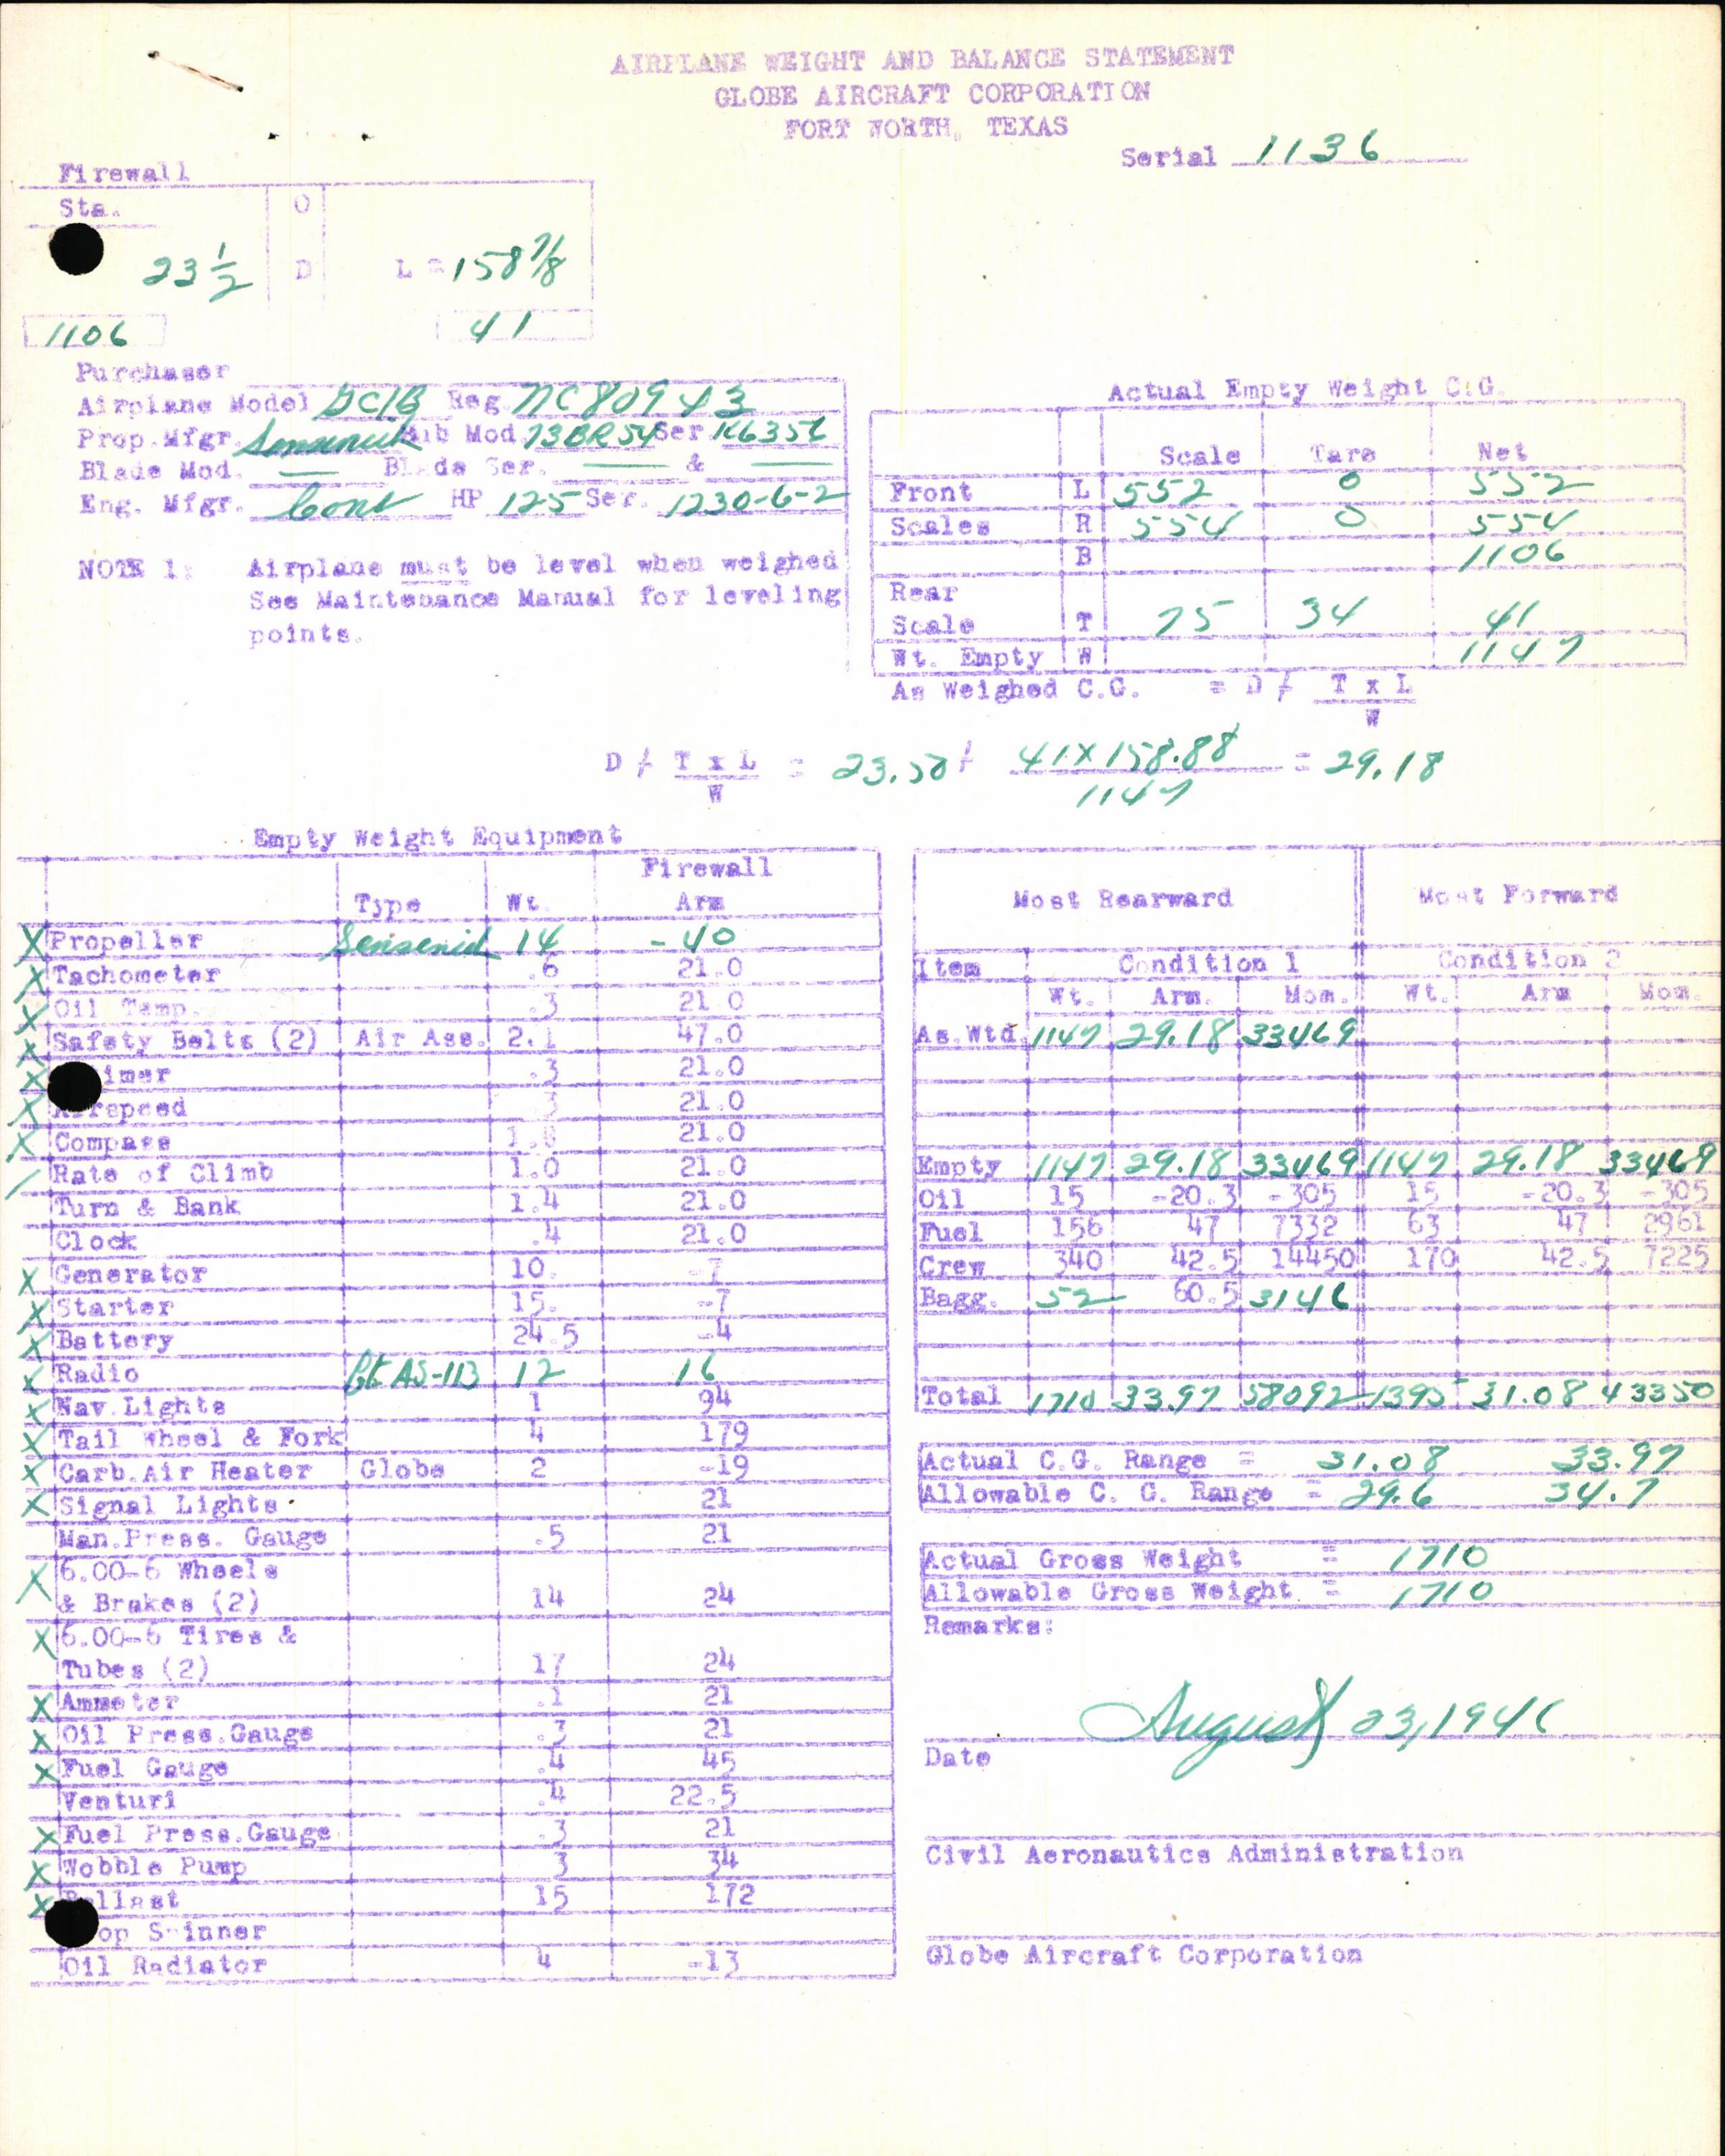 AIRPLANE WEIGHT AND BALANCE STATEMENT
GLOBE AIRCRAFT CORPORATION
FORT WORTH, TEXAS
Serial 1136
Firewall
Sta. O
23 1/2 D L = 158 7/8
1106 41
Purchaser
Airplane Model GC1B Reg. NC80943
Prop. Mfgr. Sensenich Hub Mod. 73BR54 Ser. K6356
Blade Mod. — Blade Ser. — & —
Eng. Mfgr. Cont HP 125 Ser. 1230-6-2
NOTE 1: Airplane must be level when weighed
See Maintenance Manual for leveling
points.
Actual Empty Weight C.G.
Scale Tare Net
Front L 552 0 552
Scales R 554 0 554
B 1106
Rear
Scale T 75 34 41
Wt. Empty W 1147
As Weighed C.G. = D ≠ T x L
W
D ≠ T x L = 23.50 + 41 x 158.88 = 29.18
W 1147
Empty Weight Equipment
Firewall
Type Wt. Arm
X Propeller Sensenich 14 -40
X Tachometer .6 21.0
X Oil Temp. .3 21.0
X Safety Belts (2) Air Ass. 2.1 47.0
X imer .3 21.0
X Airspeed .3 21.0
X Compass 21.0
/ Rate of Climb 1.0 21.0
Turn & Bank 1.4 21.0
Clock .4 21.0
X Generator 10. -7
X Starter 15. -7
X Battery 24.5 -4
X Radio AS-113 12 16
X Nav. Lights 1 94
X Tail Wheel & Fork 4 179
X Carb. Air Heater Globe 2 -19
X Signal Lights 21
Man. Press. Gauge .5 21
X 6.00-6 Wheels
& Brakes (2) 14 24
X 6.00-6 Tires &
Tubes (2) 17 24
X Ammeter .1 21
X Oil Press. Gauge .3 21
X Fuel Gauge .4 45
Venturi .4 22.5
X Fuel Press. Gauge .3 21
X Wobble Pump 3 34
X Ballast 15 172
op Spinner
Oil Radiator 4 -13
Most Rearward Most Forward
Item Condition 1 Condition 2
Wt. Arm. Mom. Wt. Arm Mom.
As. Wtd. 1147 29.18 33469
Empty 1147 29.18 33469 1147 29.18 33469
Oil 15 -20.3 -305 15 -20.3 -305
Fuel 156 47 7332 63 47 2961
Crew 340 42.5 14450 170 42.5 7225
Bagg. 52 60.5 3146
Total 1710 33.97 58092 1395 31.08 43350
Actual C.G. Range = 31.08 33.97
Allowable C. G. Range = 29.6 34.7
Actual Gross Weight = 1710
Allowable Gross Weight = 1710
Remarks:
August 23, 1946
Date
Civil Aeronautics Administration
Globe Aircraft Corporation